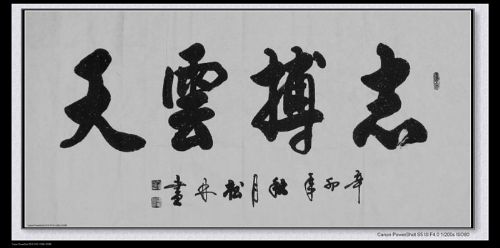 志搏雲天
辛卯年秋月松林書
Canon PowerShot S5 IS F4.0 1/200s ISO80